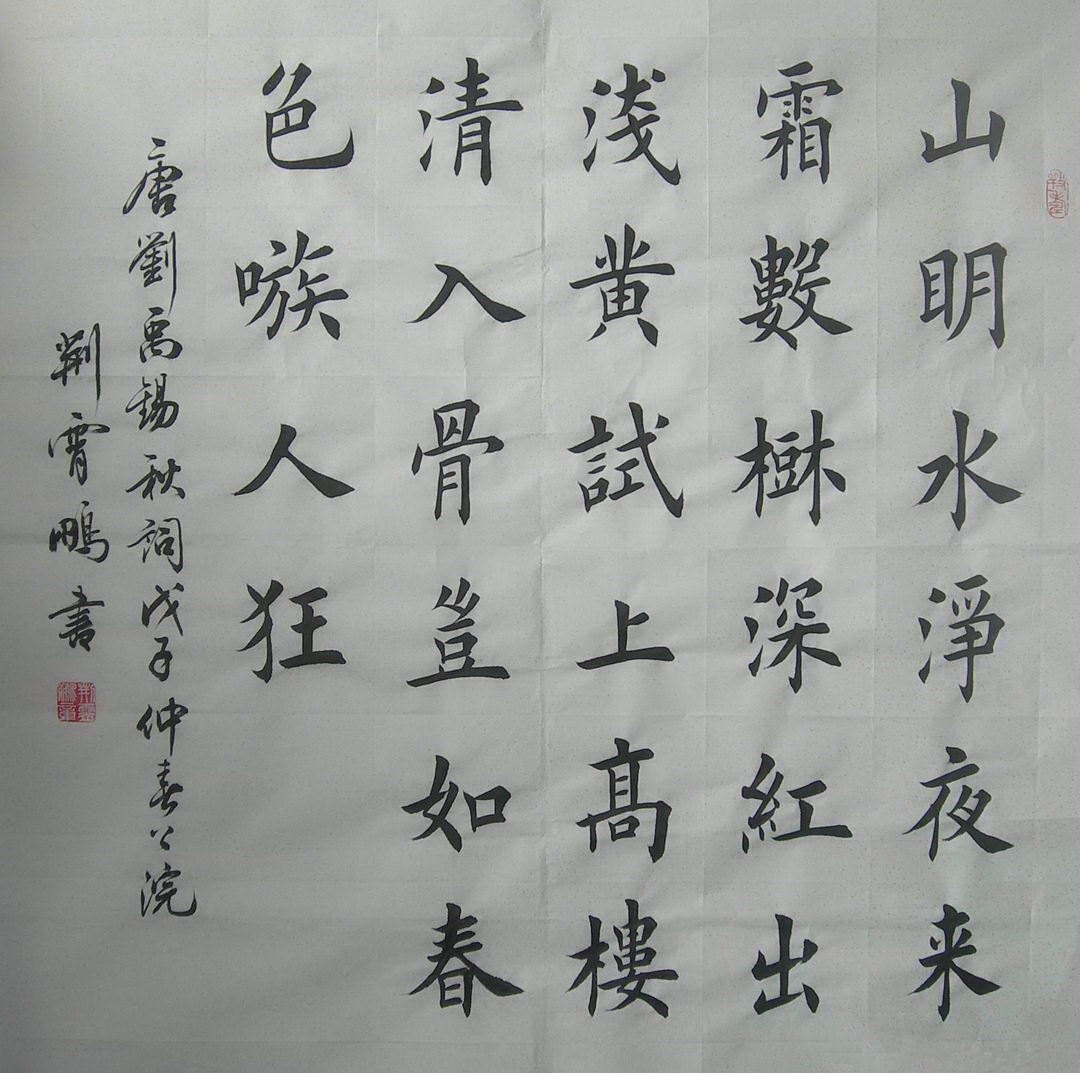 山明水淨夜来
霜數樹深紅出
淺黄試上髙樓
清入骨豈如春
色嗾人狂
唐劉禹錫秋詞戊子仲春公浣
荆霄鵬書